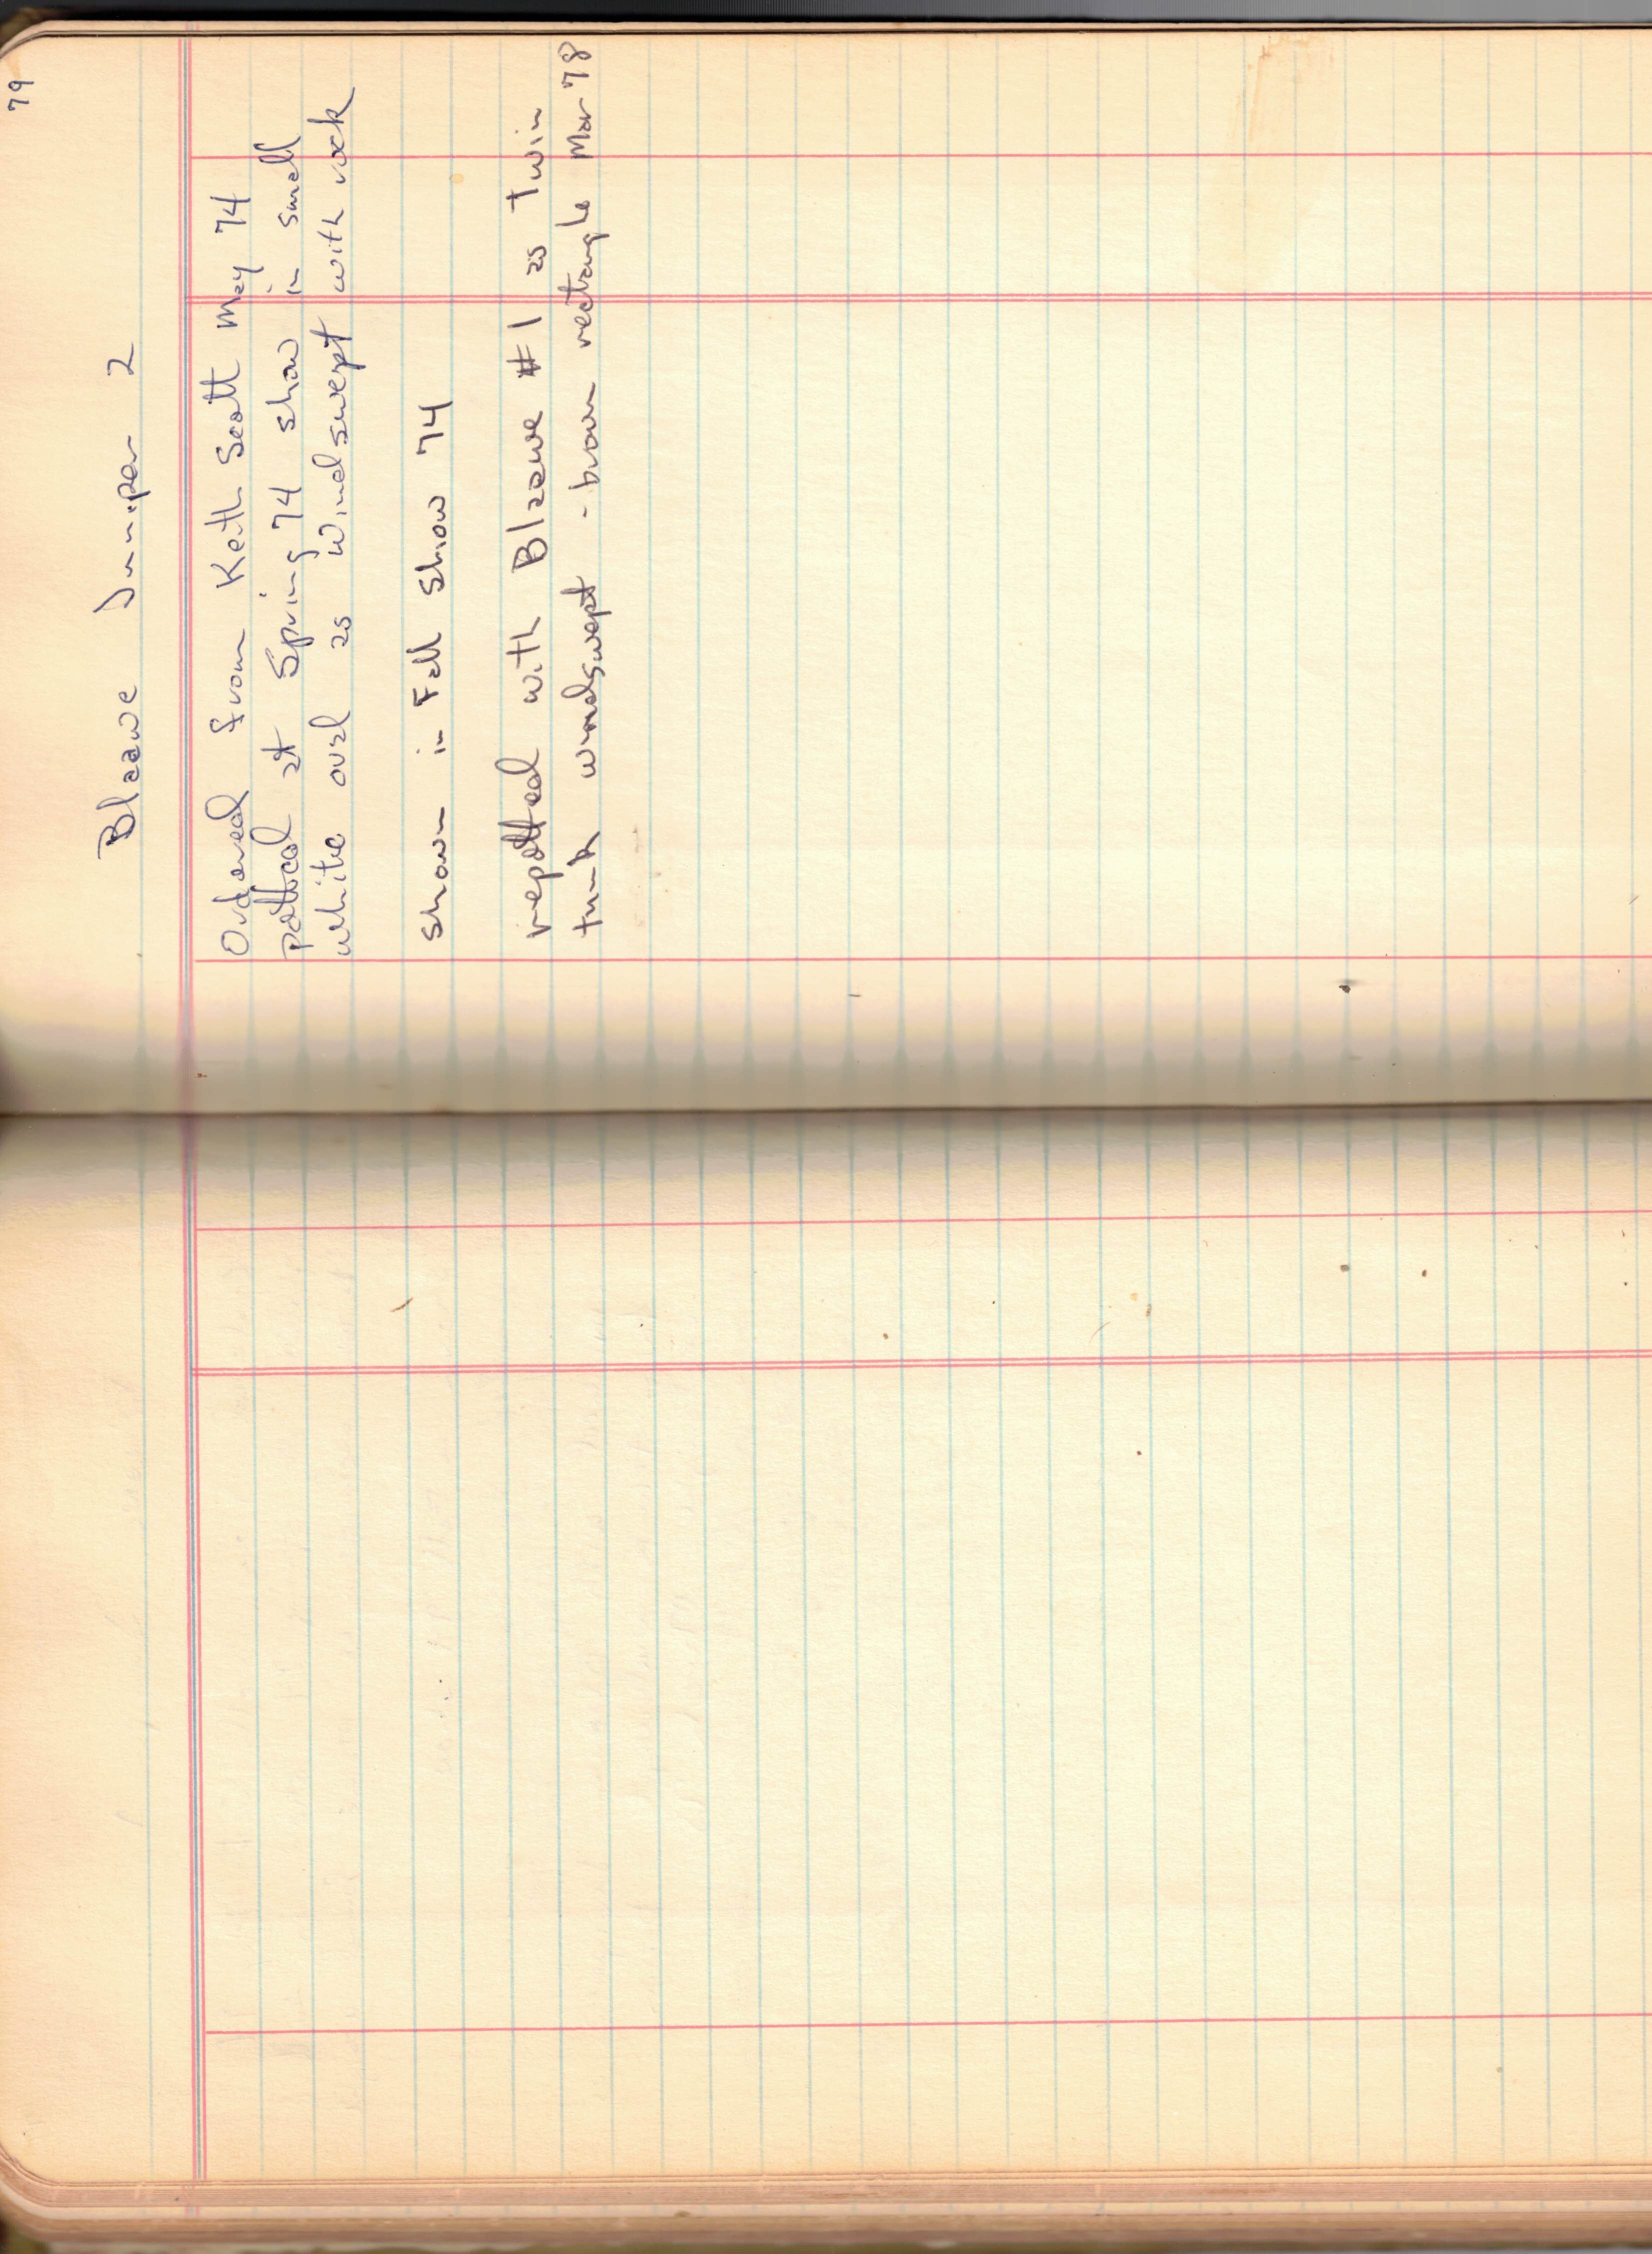 79
Blaawe Juniper 2
Ordered from Keith Scott May 74
potted at Spring 74 show in small
white oval as Windswept with rock
shown in Fall Show 74
repotted with Blaawe #1 as twin
trunk windswept - brown rectangle Mar 78